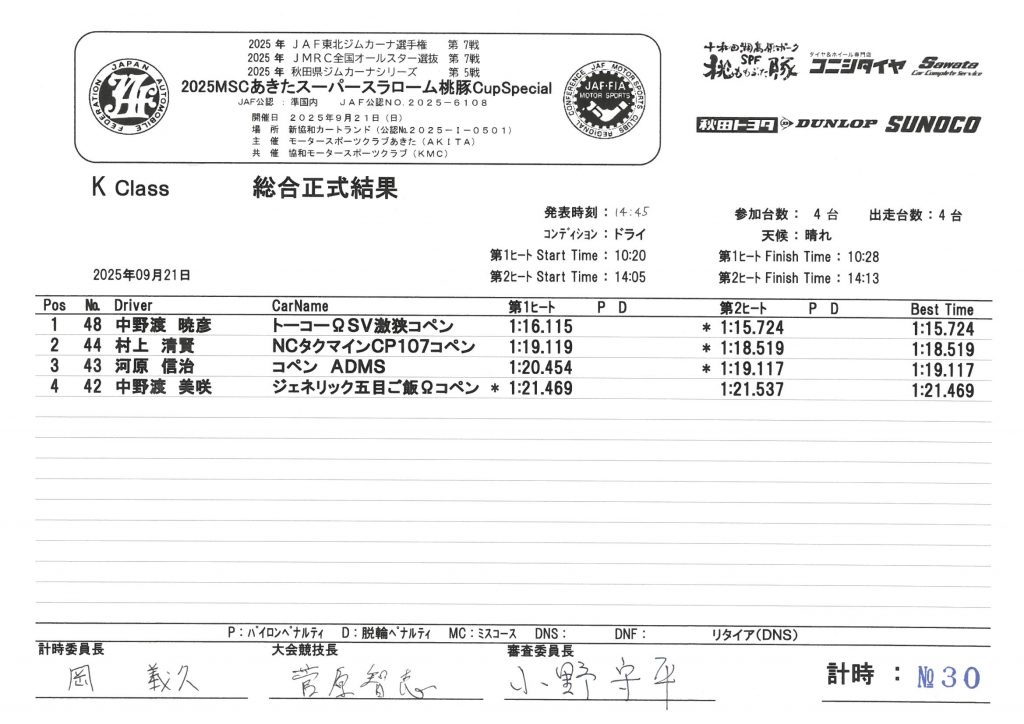 2025 年 ＪＡＦ東北ジムカーナ選手権 第 7戦
2025 年 ＪＭＲＣ全国オールスター選抜 第 7戦
2025 年 秋田県ジムカーナシリーズ 第 5戦
2025MSCあきたスーパースラローム桃豚CupSpecial
JAF公認 ：準国内 JAF公認NO.2025-6108
開催日 2025年9月21日（日）
場 所 新協和カートランド（公認№2025-I-0501）
主 催 モータースポーツクラブあきた（AKITA）
共 催 協和モータースポーツクラブ（KMC）
JAPAN AUTOMOBILE FEDERATION
JAF
JAF MOTOR SPORTS CLUBS REGIONAL CONFERENCE
JAF-FIA
MOTOR SPORTS
十和田湖高原ポーク
SPF
桃ももぶた豚
タイヤ&ホイール専門店
コニシタイヤ
Sawata
Car Complete Service
秋田トヨタ
DUNLOP
SUNOCO
K Class 総合正式結果
発表時刻：14:45 参加台数： 4 台 出走台数：4 台
ｺﾝﾃﾞｨｼｮﾝ：ドライ 天候：晴れ
第1ﾋｰﾄ Start Time：10:20 第1ﾋｰﾄ Finish Time：10:28
2025年09月21日 第2ﾋｰﾄ Start Time：14:05 第2ﾋｰﾄ Finish Time：14:13
Pos № Driver CarName 第1ﾋｰﾄ P D 第2ﾋｰﾄ P D Best Time
1 48 中野渡 暁彦 トーコーΩSV激狭コペン 1:16.115 * 1:15.724 1:15.724
2 44 村上 清賢 NCタクマインCP107コペン 1:19.119 * 1:18.519 1:18.519
3 43 河原 信治 コペン ADMS 1:20.454 * 1:19.117 1:19.117
4 42 中野渡 美咲 ジェネリック五目ご飯Ωコペン * 1:21.469 1:21.537 1:21.469
P：ﾊﾟｲﾛﾝﾍﾟﾅﾙﾃｨ D：脱輪ﾍﾟﾅﾙﾃｨ MC：ﾐｽｺｰｽ DNS： DNF： ﾘﾀｲｱ(DNS)
計時委員長 大会競技長 審査委員長
岡 義久 菅原智恵 小野守平
計時 ： №30